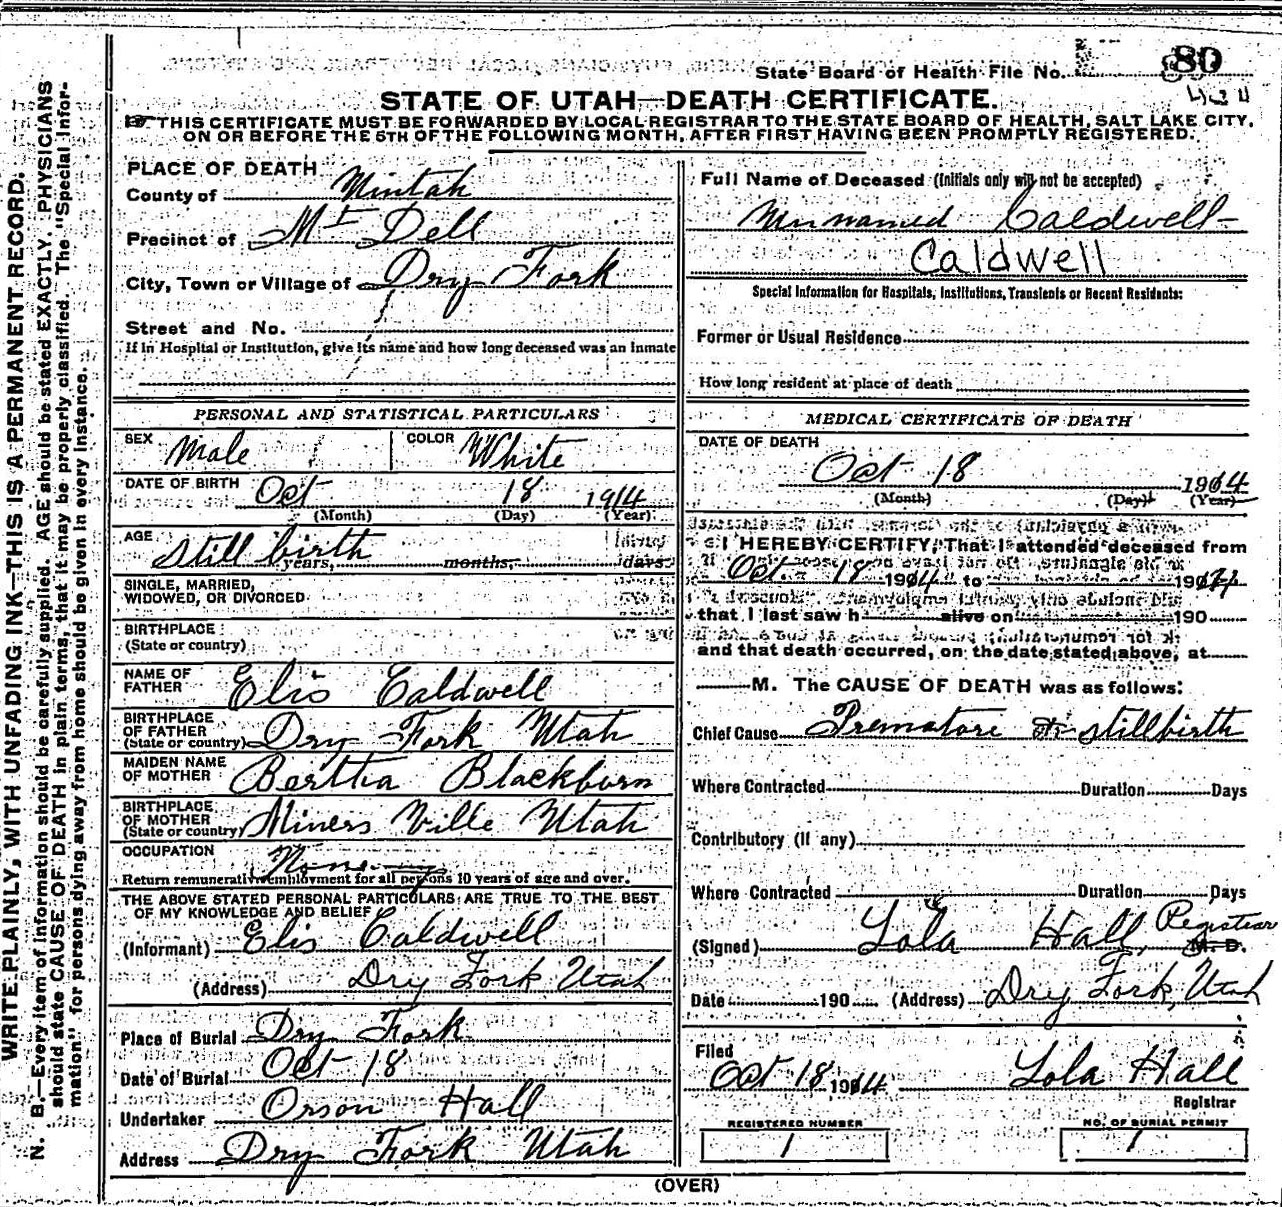 State Board of Health File No. 80
STATE OF UTAH—DEATH CERTIFICATE.
THIS CERTIFICATE MUST BE FORWARDED BY LOCAL REGISTRAR TO THE STATE BOARD OF HEALTH, SALT LAKE CITY,
ON OR BEFORE THE 5TH OF THE FOLLOWING MONTH, AFTER FIRST HAVING BEEN PROMPTLY REGISTERED.
WRITE PLAINLY, WITH UNFADING INK—THIS IS A PERMANENT RECORD.
N. B.—Every item of information should be carefully supplied. AGE should be stated EXACTLY. PHYSICIANS
should state CAUSE OF DEATH in plain terms, that it may be properly classified. The "Special Infor-
mation" for persons dying away from home should be given in every instance.
PLACE OF DEATH
County of Uintah
Precinct of Mt Dell
City, Town or Village of Dry Fork
Street and No.
If in Hospital or Institution, give its name and how long deceased was an inmate
PERSONAL AND STATISTICAL PARTICULARS
SEX Male COLOR White
DATE OF BIRTH Oct 18 1914
(Month) (Day) (Year)
AGE still birth
years, months, days
SINGLE, MARRIED,
WIDOWED, OR DIVORCED
BIRTHPLACE
(State or country)
NAME OF
FATHER Elis Caldwell
BIRTHPLACE
OF FATHER
(State or country) Dry Fork Utah
MAIDEN NAME
OF MOTHER Bertha Blackburn
BIRTHPLACE
OF MOTHER
(State or country) Miners Ville Utah
OCCUPATION None
Return remunerative employment for all persons 10 years of age and over.
THE ABOVE STATED PERSONAL PARTICULARS ARE TRUE TO THE BEST
OF MY KNOWLEDGE AND BELIEF
(Informant) Elis Caldwell
(Address) Dry Fork Utah
Place of Burial Dry Fork
Date of Burial Oct 18
Undertaker Orson Hall
Address Dry Fork Utah
Full Name of Deceased (Initials only will not be accepted)
Unnamed Caldwell
Caldwell
Special Information for Hospitals, Institutions, Transients or Recent Residents:
Former or Usual Residence
How long resident at place of death
MEDICAL CERTIFICATE OF DEATH
DATE OF DEATH
Oct 18 1914
(Month) (Day) (Year)
I HEREBY CERTIFY, That I attended deceased from
Oct. 18 1914 to 190
that I last saw h alive on 190
and that death occurred, on the date stated above, at
M. The CAUSE OF DEATH was as follows:
Chief Cause Prematore stillbirth
Where Contracted Duration Days
Contributory (if any)
Where Contracted Duration Days
(Signed) Lola Hall, Registrar M. D.
Date 190 (Address) Dry Fork, Utah
Filed
Oct 18 1914 Lola Hall
Registrar
REGISTERED NUMBER NO. OF BURIAL PERMIT
1 1
(OVER)